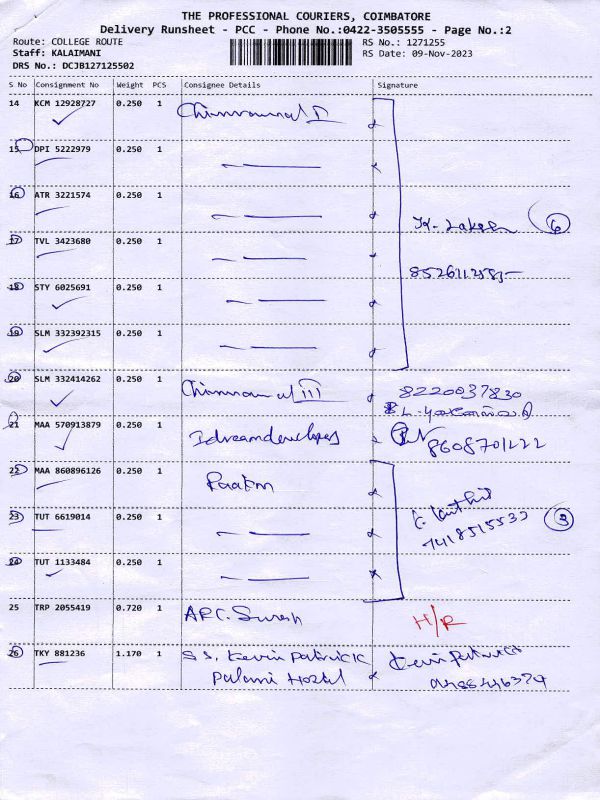 THE PROFESSIONAL COURIERS, COIMBATORE
Delivery Runsheet - PCC - Phone No.:0422-3505555 - Page No.:2
Route: COLLEGE ROUTE RS No.: 1271255
Staff: KALAIMANI RS Date: 09-Nov-2023
DRS No.: DCJB127125502
S No Consignment No Weight PCS Consignee Details Signature
14 KCM 12928727 0.250 1
15 DPI 5222979 0.250 1
16 ATR 3221574 0.250 1
6
17 TVL 3423680 0.250 1
18 STY 6025691 0.250 1
19 SLM 332392315 0.250 1
20 SLM 332414262 0.250 1 8220037830
21 MAA 570913879 0.250 1 Idreamdevelopers 8608701222
22 MAA 860896126 0.250 1
23 TUT 6619014 0.250 1 7418515533 3
24 TUT 1133484 0.250 1
25 TRP 2055419 0.720 1 APC. Suresh H/R
26 TKY 881236 1.170 1 S.S. Kevin Patrick
Palani Hostel